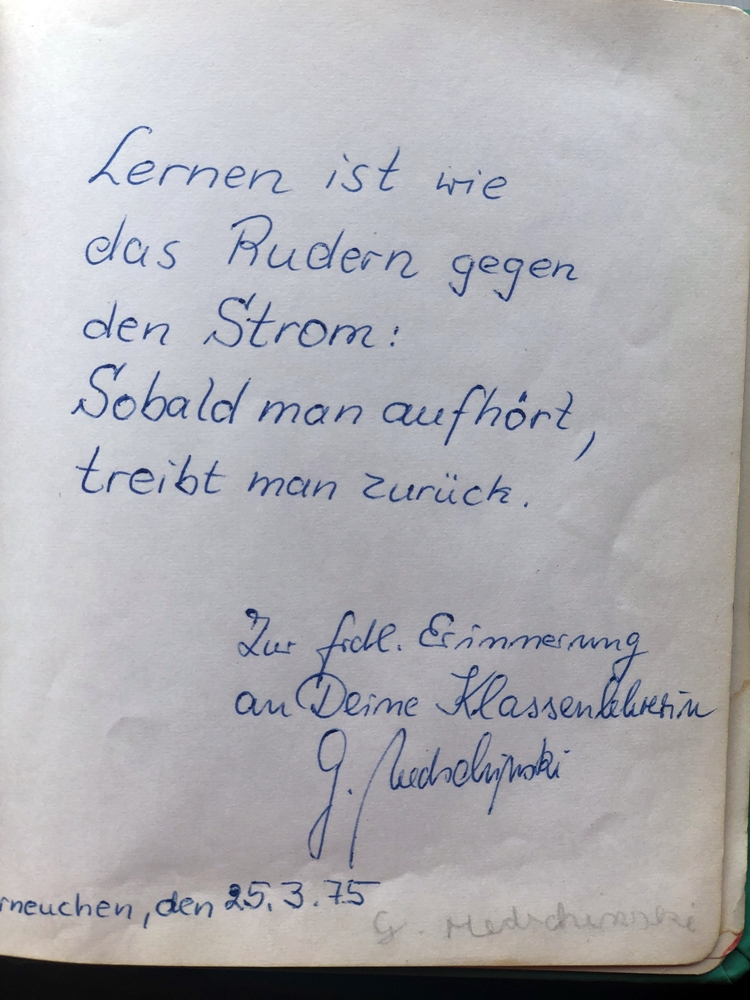 Lernen ist wie
das Rudern gegen
den Strom:
Sobald man aufhört,
treibt man zurück.
Zur frdl. Erinnerung
an Deine Klassenlehrerin
G.
rneuchen, den 25.3.75
G.